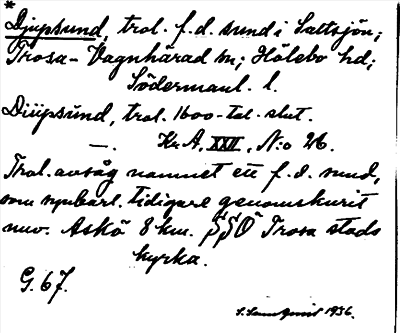 *
Djupsund, trol. f.d. sund i Saltsjön;
Trosa-Vagnhärad sn; Hölebo hd;
Södermanl. l.
Diüpsünd, trol. 1600-tal. slut.
—. Kr. A, XXII, N:o 26.
Trol. avsåg namnet ett f.d. sund,
som uppbarl. tidigare genomskurit
nuv. Askö 8 km. SSO Trosa stads
kyrka.
G. 67.
1936.